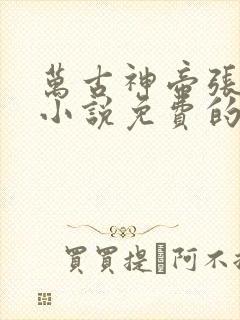 萬古神帝張
小說免費的
買買提 阿不